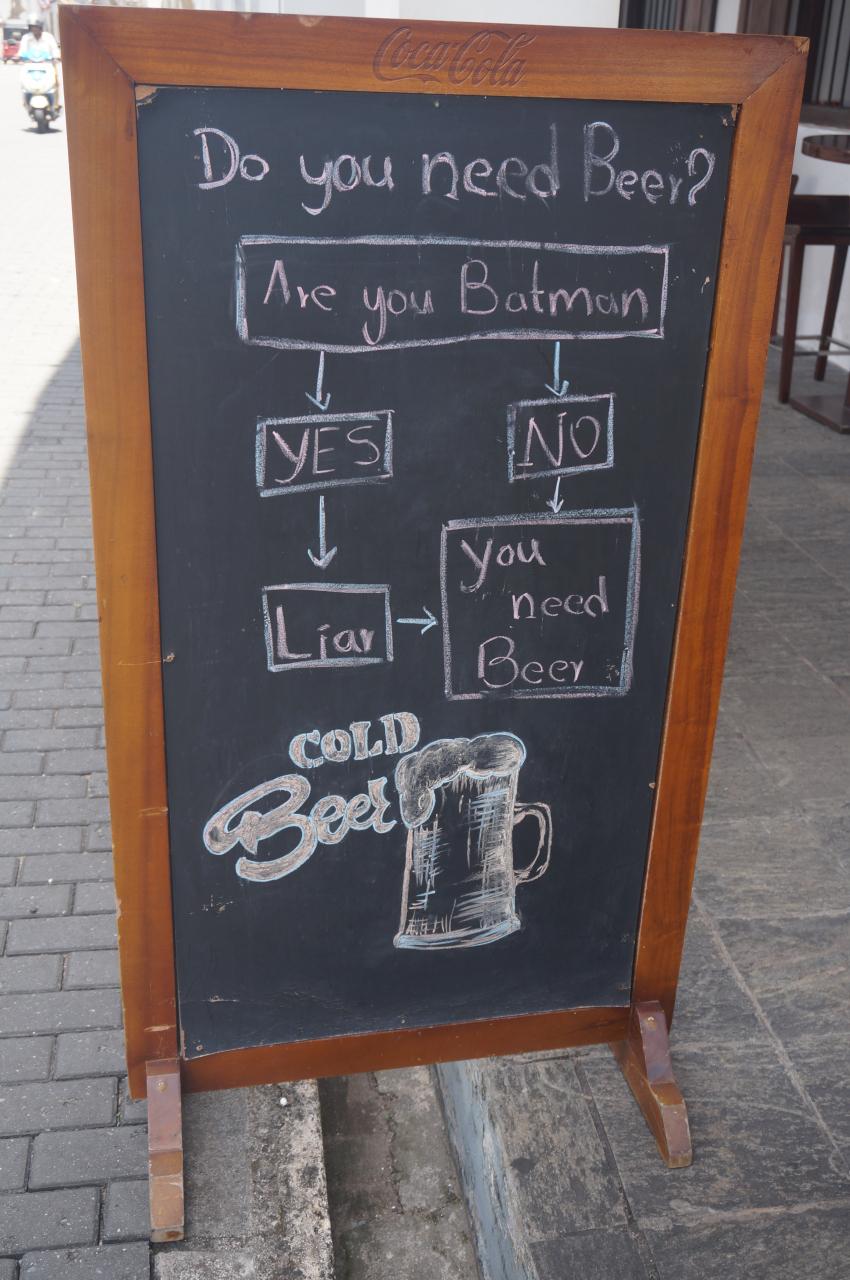 Coca-Cola
Do you need Beer?
Are you Batman
YES
NO
Liar
you
need
Beer
COLD
Beer